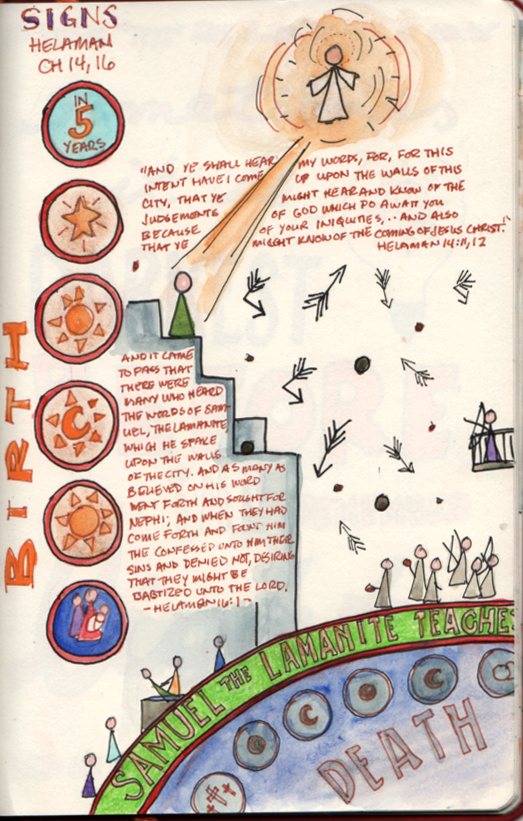 SIGNS
HELAMAN
CH 14, 16
IN
5
YEARS
"AND YE SHALL HEAR MY WORDS, FOR, FOR THIS
INTENT HAVE I COME UP UPON THE WALLS OF THIS
CITY, THAT YE MIGHT HEAR AND KNOW OF THE
JUDGEMENTS OF GOD WHICH DO AWAIT YOU
BECAUSE OF YOUR INIQUITIES,.. AND ALSO
THAT YE MIGHT KNOW OF THE COMING OF JESUS CHRIST."
HELAMAN 14:11,12
BIRTH
AND IT CAME
TO PASS THAT
THERE WERE
MANY WHO HEARD
THE WORDS OF SAM-
UEL, THE LAMANITE,
WHICH HE SPAKE
UPON THE WALLS
OF THE CITY. AND AS MANY AS
BELIEVED ON HIS WORD
WENT FORTH AND SOUGHT FOR
NEPHI; AND WHEN THEY HAD
COME FORTH AND FOUND HIM
THE CONFESSED UNTO HIM THEIR
SINS AND DENIED NOT, DESIRING
THAT THEY MIGHT BE
BABTIZED UNTO THE LORD.
- HELAMAN 16:1 -
SAMUEL THE LAMANITE TEACHES
DEATH